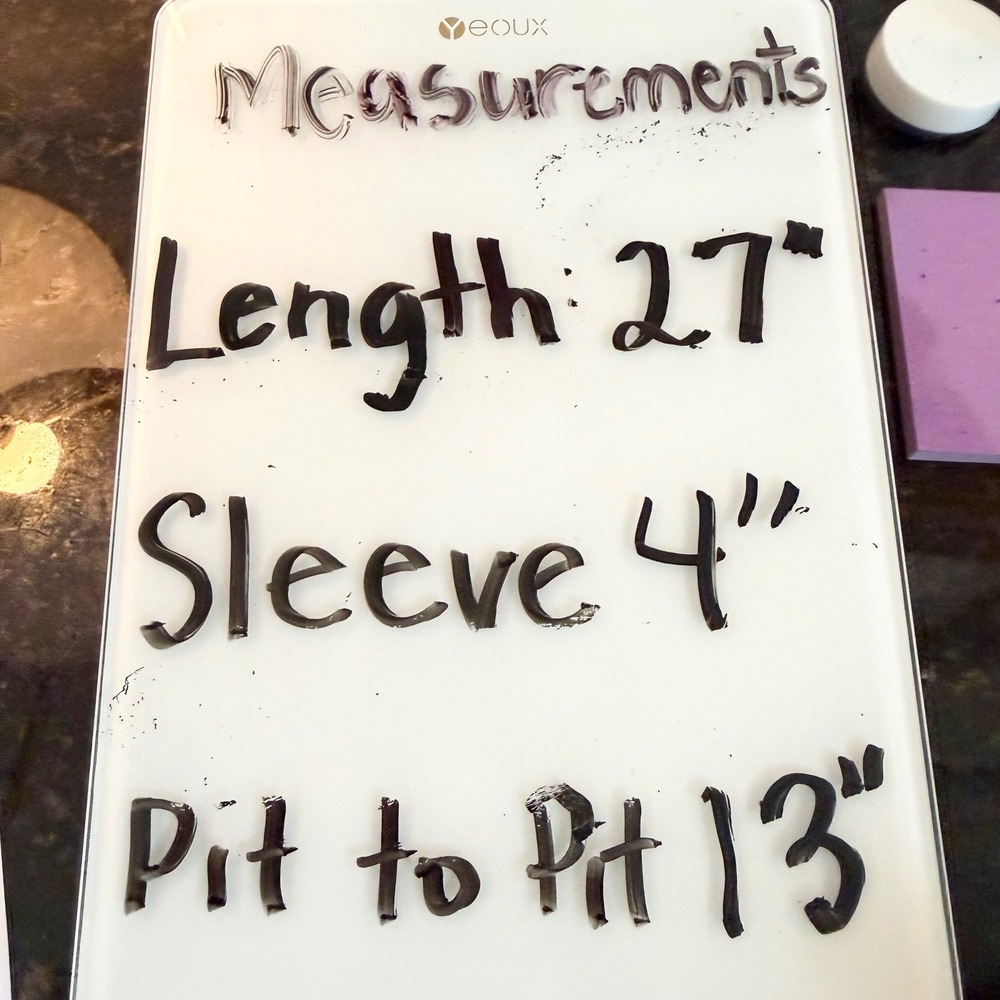 Yeoux
Measurements
Length: 27"
Sleeve 4"
Pit to Pit 13"